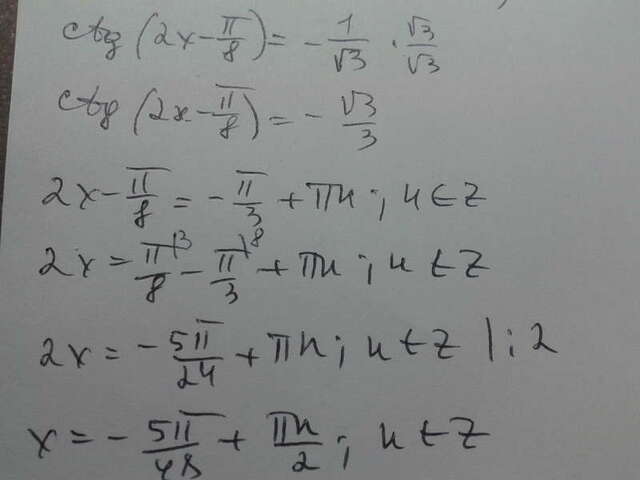 ctg (2x - π/8) = - 1/√3 · √3/√3
ctg (2x - π/8) = - √3/3
2x - π/8 = - π/3 + πn; n ∈ Z
2x = π/8 |3 - π/3 |8 + πn; n ∈ Z
2x = - 5π/24 + πn; n ∈ Z | : 2
x = - 5π/48 + πn/2; n ∈ Z